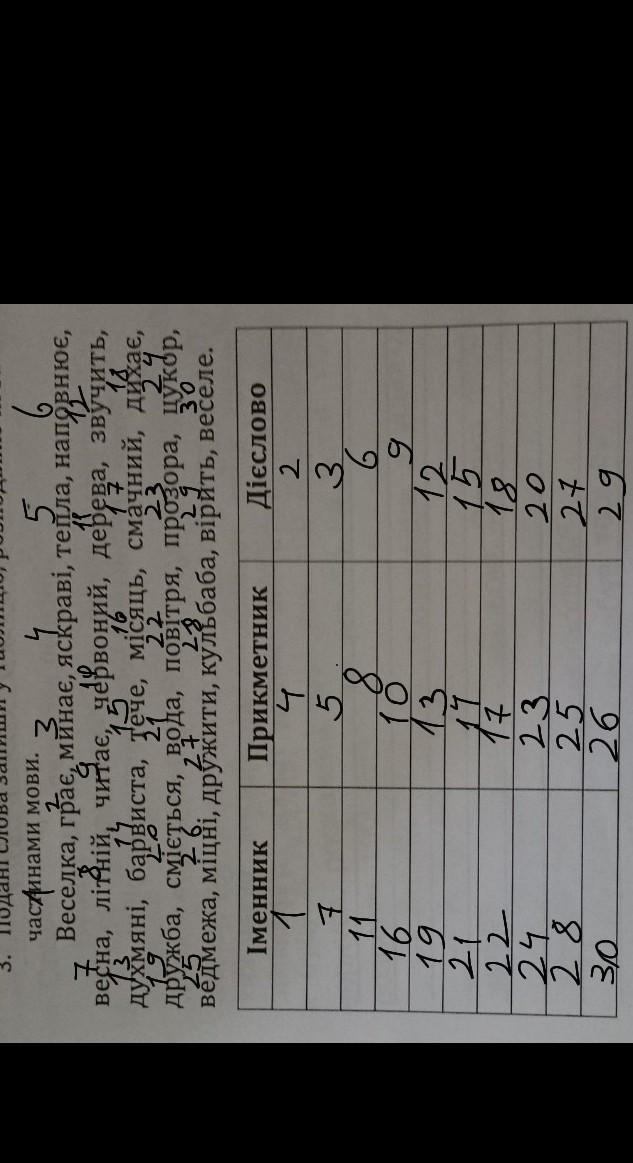 3. Подані слова запиши у таблицю,
частинами мови.
1 2 3 4 5 6
Веселка, грає, минає, яскраві, тепла, наповнює,
7 8 9 10 11 12
весна, літній, читає, червоний, дерева, звучить,
13 14 15 16 17 18
духмяні, барвиста, тече, місяць, смачний, дихає,
19 20 21 22 23 24
дружба, сміється, вода, повітря, прозора, цукор,
25 26 27 28 29 30
ведмежа, міцні, дружити, кульбаба, вірить, веселе.
Іменник Прикметник Дієслово
1 4 2
7 5 3
11 8 6
16 10 9
19 13 12
21 14 15
22 17 18
24 23 20
28 25 27
30 26 29